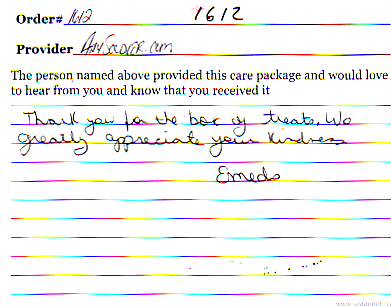 Order# 1612 1612
Provider AnySoldier.com
The person named above provided this care package and would love
to hear from you and know that you received it
Thank you for the box of treats. We
greatly appreciate your kindness
Emeds